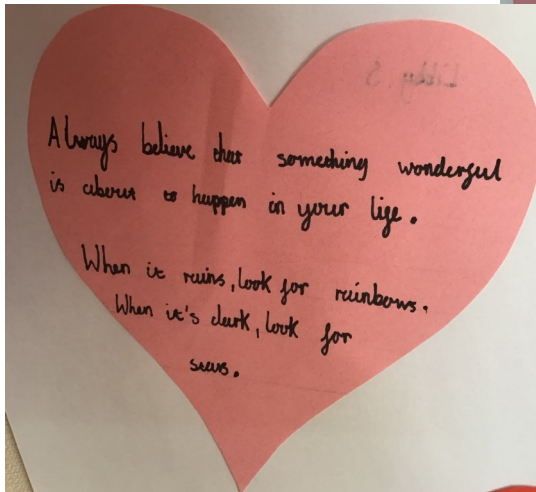 Libby. S
Always believe that something wonderful
is about to happen in your life.
When it rains, look for rainbows.
When it's dark, look for
stars.